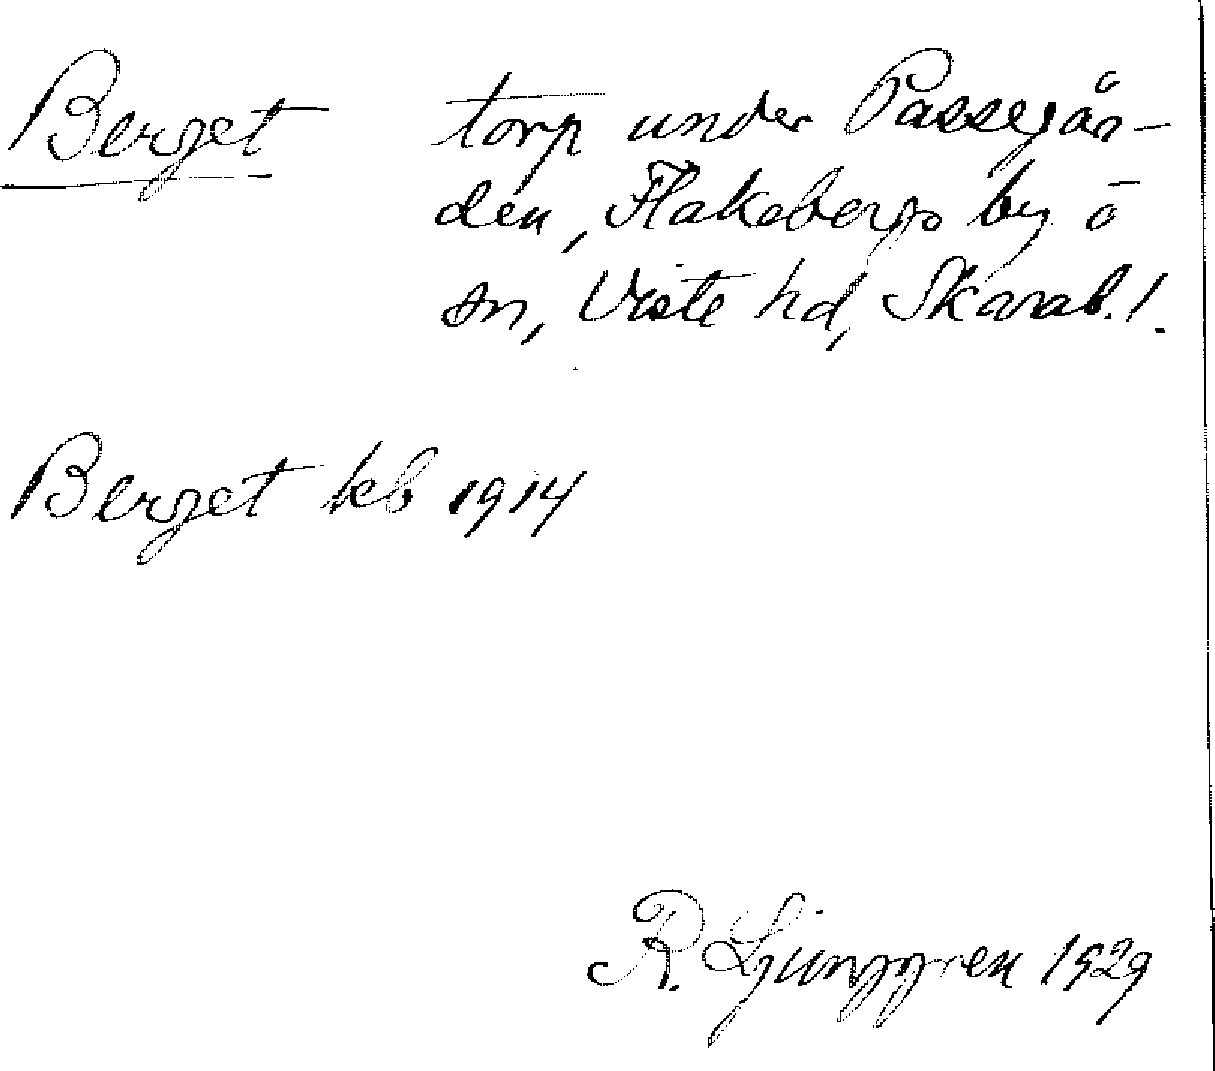 Berget torp under Passegår-
den, Flakebergs by o
sn, Viste hd, Skarab. l.
Berget kb 1914
R. Ljunggren 1929